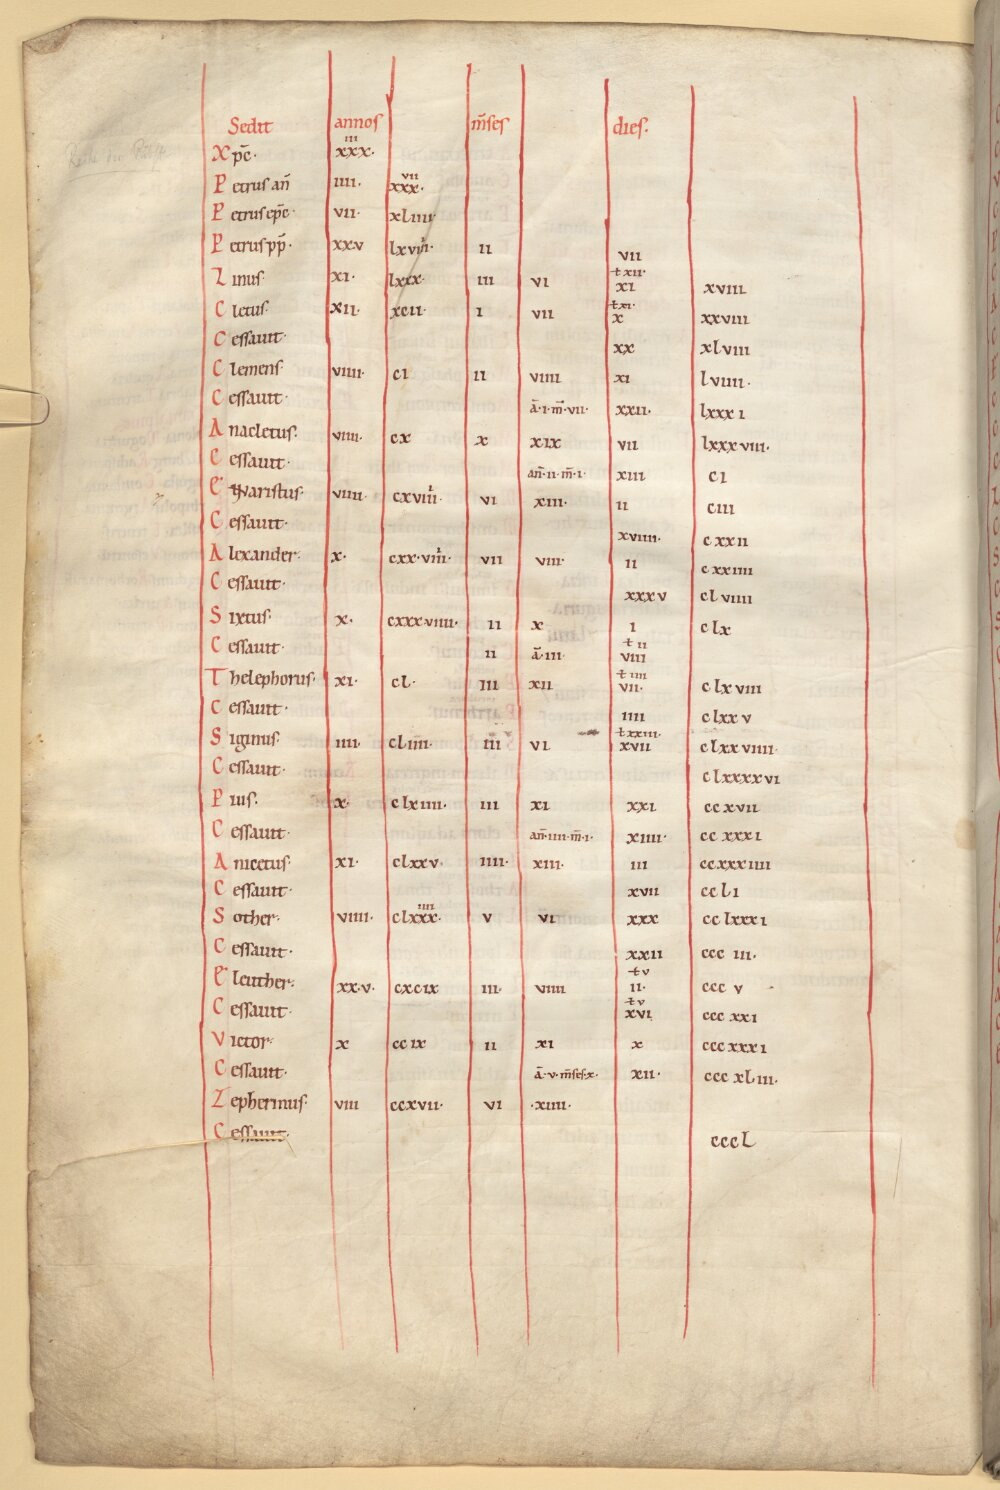 Sedit annos m̄ses dies.
Xp̄c. xxx. iii
Petrus an̄ iiii. xxx. vii
Petrus ep̄c. vii. xLiiii
Petrus pp̄. xxv lxviii. ii vii
Linus. xi. lxxx. iii vi ł xii. xi xviii
Cletus. xii. xcii. i vii ł xi. x xxviii
Cessauit. xx xlviii
Clemens. viiii. ci ii viiii xi lviiii.
Cessauit. ā.i.m̄.vii. xxii. lxxxi
Anacletus. viiii. cx x xix vii lxxxviii.
Cessauit. an̄.ii.m̄.i. xiii ci
Euaristus. viiii. cxviii. vi xiii. ii ciii
Cessauit. xviiii. cxxii
Alexander. x. cxx.viii. vii viii. ii cxxiiii
Cessauit. xxxv clviiii
Sixtus. x. cxxxviiii. ii x i clx
Cessauit. ii ā.iii. ł ii viii
Thelephorus. xi. cl. iii xii ł iiii vii. clxviii
Cessauit. iiii clxxv
Siginus. iiii. cliiii. iii vi ł xxiii. xvii clxxviiii.
Cessauit. clxxxxvi
Pius. x. clxiiii. iii xi xxi ccxvii
Cessauit. an̄.iiii.m̄.i. xiiii. ccxxxi
Anicetus. xi. clxxv. iiii. xiii. iii ccxxxiiii
Cessauit. xvii ccli
Sother. viiii. clxxx. iiii v vi xxx cclxxxi
Cessauit. xxii ccc iii.
Eleuther. xx.v. cxcix iii. viiii ł v ii. ccc v
Cessauit. ł v xvi ccc xxi
Victor. x ccix ii xi x cccxxxi
Cessauit. ā.v.m̄ses.x. xii. ccc xLiii.
Zepherinus. viii ccxvii. vi .xiiii.
Cessauit. cccL